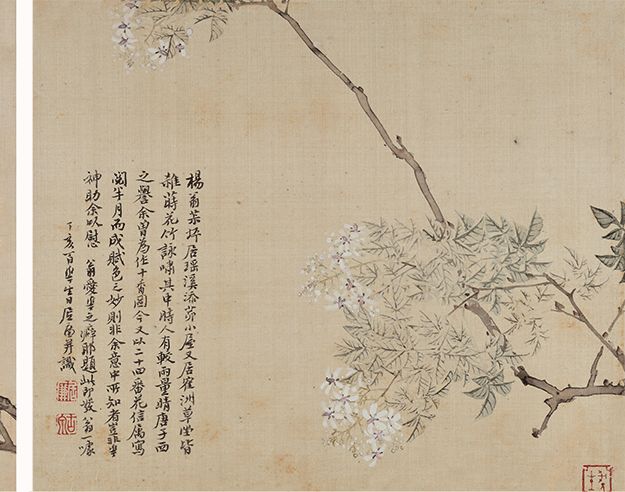 楊翁蒹坪居瑶溪添茆小屋又居隺洲草堂皆
雜蒔花竹詠嘯其中時人有較雨量晴唐子西
之譽余曽為作十香圖今又以二十四番花信屬寫
閲半月而成賦色之妙則非余意中所知者豈非
神助余以慰 翁愛𠦪之癖耶題此即發翁一噱
丁亥百𠦪生日居 并識